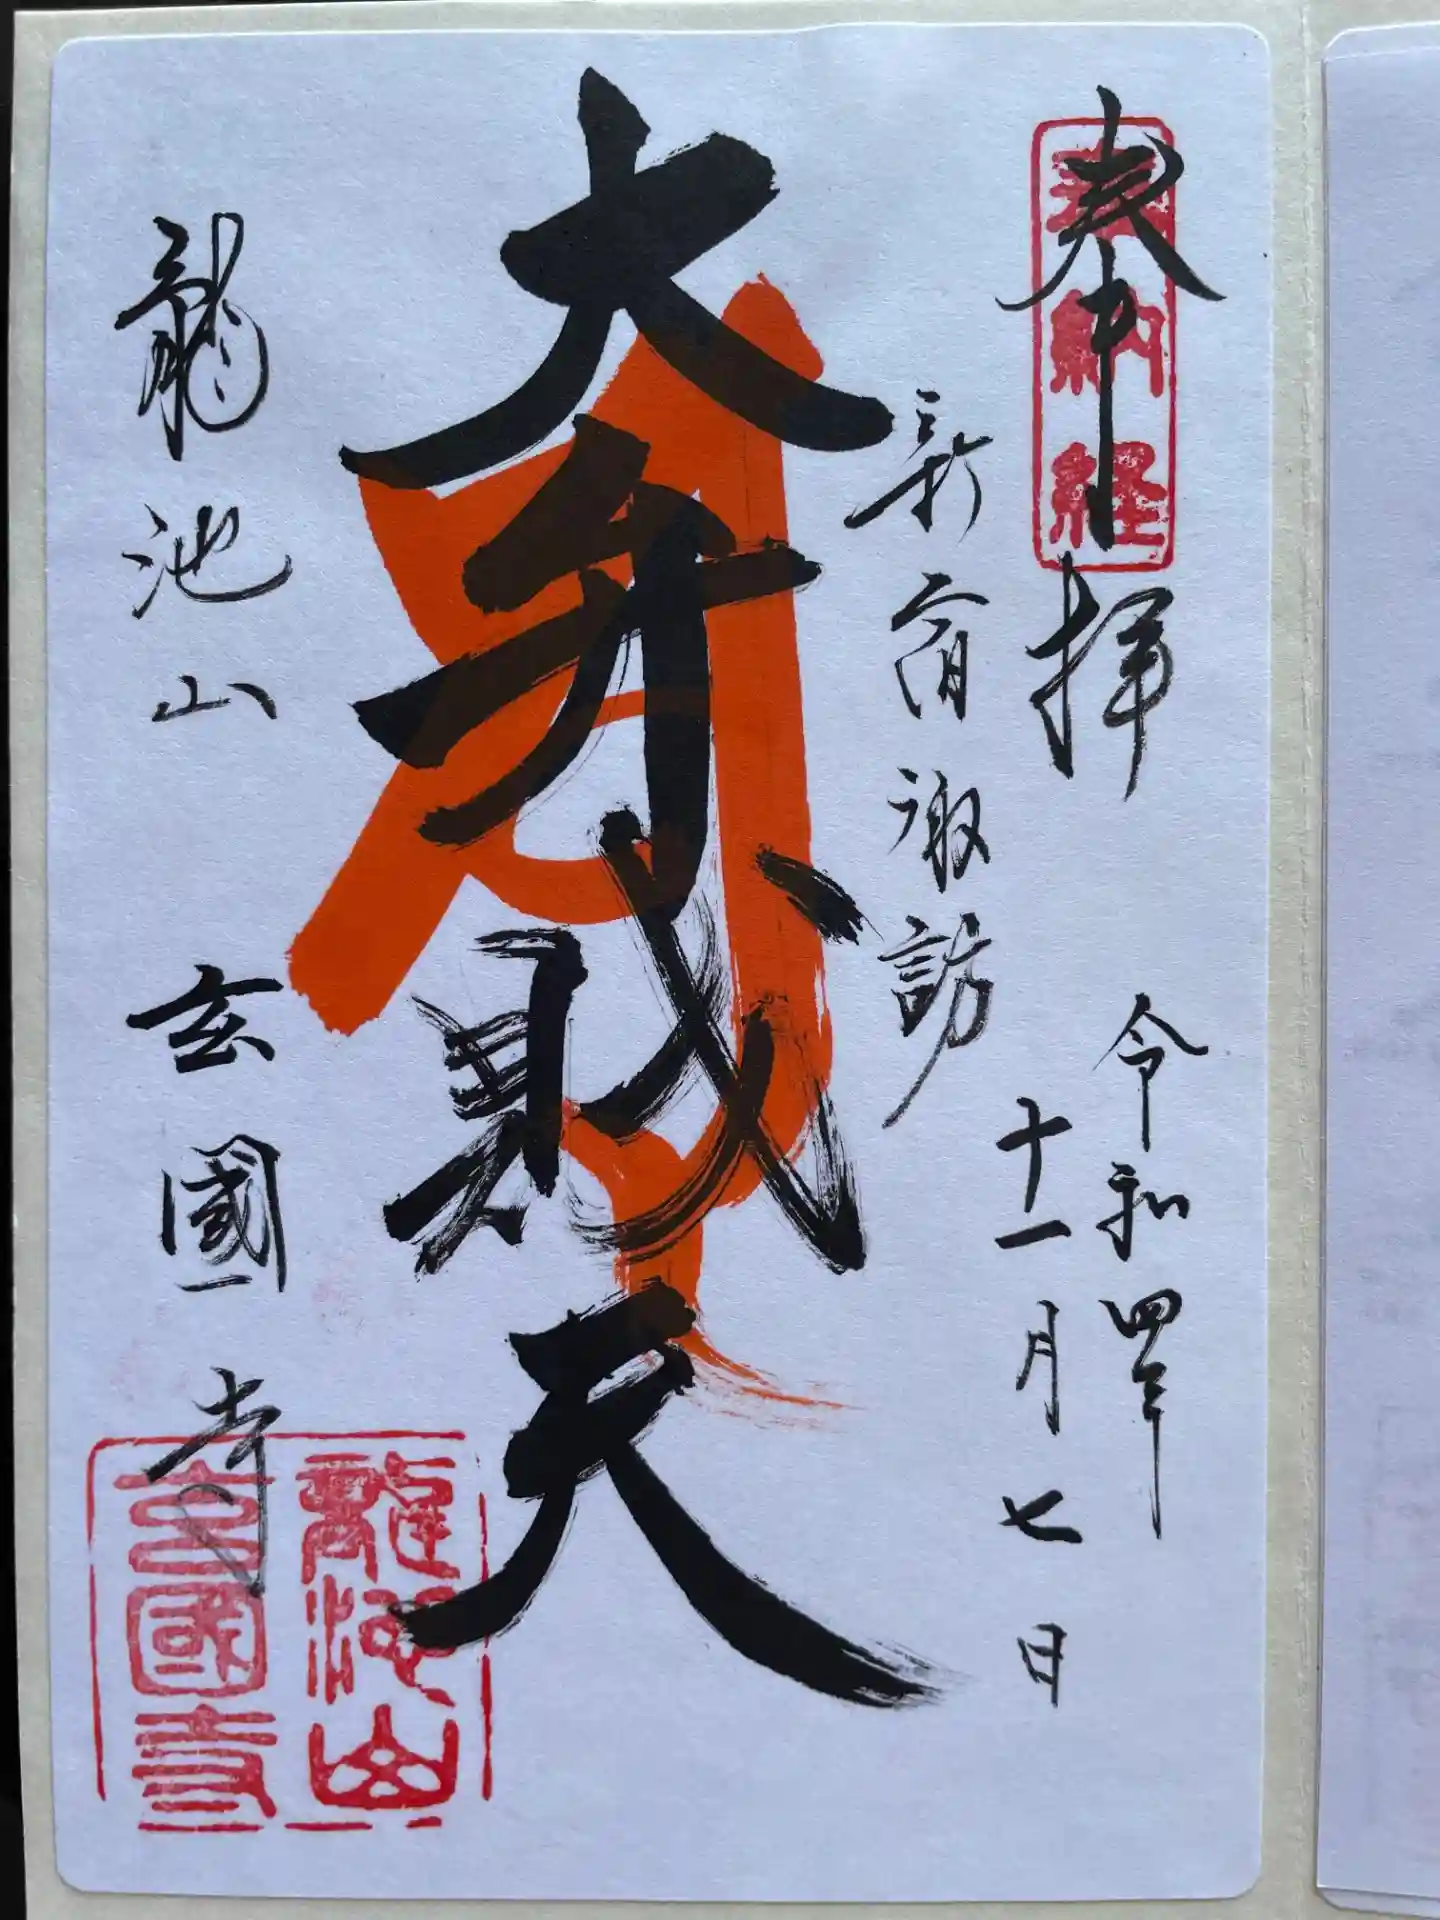 奉拝
奉納経
令和四年
十一月七日
新宿諏訪
大弁財天
龍池山
玄國寺
龍池山
玄國寺